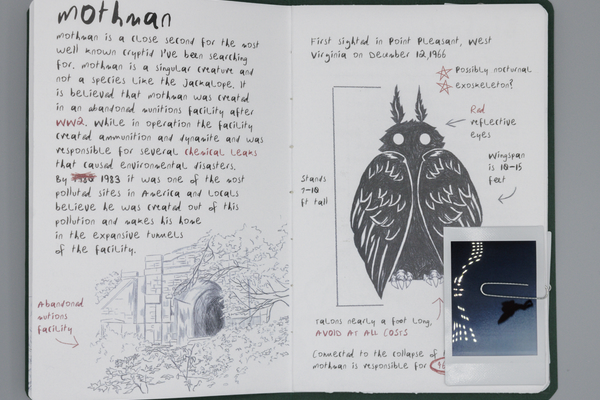 mothman
mothman is a close second for the most
well known cryptid I've been searching
for. mothman is a singular creature and
not a species like the jackalope. It
is believed that mothman was created
in an abandoned munitions facility after
WW2. While in operation the facility
created ammunition and dynamite and was
responsible for several chemical leaks
that caused environmental disasters.
By 1983 it was one of the most
polluted sites in America and locals
believe he was created out of this
pollution and makes his home
in the expansive tunnels
of the facility.
Abandoned
mutions
facility
First sighted in Point Pleasant, West
Virginia on December 12, 1966
Possibly nocturnal
exoskeleton?
Red
reflective
eyes
Wingspan
is 10-15
feet
Stands
7-10
ft tall
Talons nearly a foot long,
AVOID AT ALL COSTS
Connected to the collapse of
mothman is responsible for